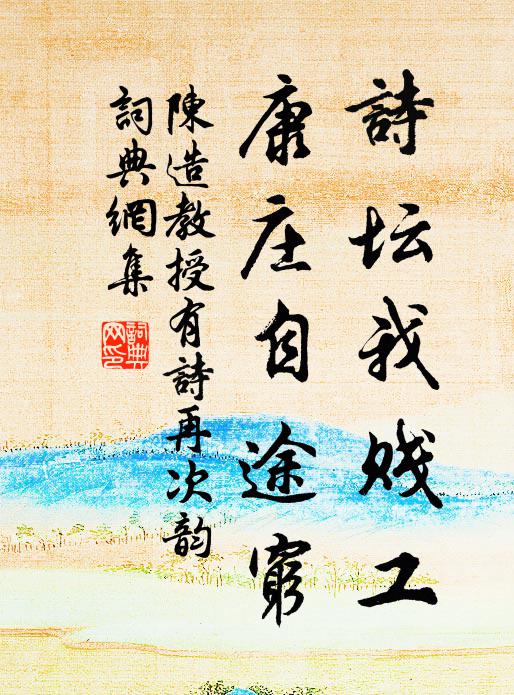 詩坛我贱工
康庄自途窮
陳造教授有詩再次韵
詞典網集
詞典
网印